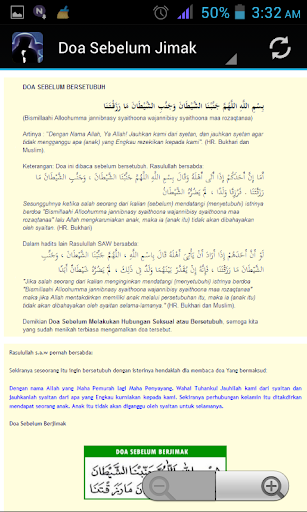 50% 3:32 AM
Doa Sebelum Jimak
DOA SEBELUM BERSETUBUH
بِسْمِ اللَّهِ اللَّهُمَّ جَنِّبْنَا الشَّيْطَانَ وَجَنِّبِ الشَّيْطَانَ مَا رَزَقْتَنَا
(Bismillaahi Alloohumma jannibnasy syaithoona wajannibisy syaithoona maa rozaqtanaa)
Artinya : "Dengan Nama Allah, Ya Allah! Jauhkan kami dari syetan, dan jauhkan syetan agar
tidak mengganggu apa (anak) yang Engkau rezekikan kepada kami". (HR. Bukhari dan
Muslim).
Keterangan: Doa ini dibaca sebelum bersetubuh. Rasulullah bersabda:
Sesungguhnya ketika salah seorang dari kalian (sebelum) mendatangi (menyetubuhi) istrinya
berdoa "Bismillaahi Alloohumma jannibnasy syaithoona wajannibisy syaithoona maa
rozaqtanaa" lalu Allah mengkaruniakan anak, maka ia (anak itu) tidak akan dibahayakan
oleh syaitan" (HR. Bukhari)
Dalam hadits lain Rasulullah SAW bersabda:
"Jika salah seorang dari kalian menginginkan mendatangi (menyetubuhi) istrinya berdoa
"Bismillaahi Alloohumma jannibnasy syaithoona wajannibisy syaithoona maa rozaqtanaa"
maka jika Allah mentakdirkan memiliki anak melalui persetubuhan itu, maka ia (anak itu)
tidak akan dibahayakan oleh syaitan selamanya" (HR. Bukhari dan Muslim)
Demikian Doa Sebelum Melakukan Hubungan Seksual atau Bersetubuh, semoga kita
yang sudah menikah terbiasa mengamalkan doa tersebut.
Rasulullah s.a.w pernah bersabda:
Sekiranya seseorang itu ingin bersetubuh dengan isterinya hendaklah dia membaca doa Yang bermaksud:
Dengan nama Allah Yang Maha Pemurah lagi Maha Penyayang. Wahai Tuhanku! Jauhilah kami dari syaitan dan
jauhkanlah syaitan dari apa yang Engkau kurniakan kepada kami. Sekiranya perhubungan kelamin itu ditakdirkan
mendapat seorang anak. Anak itu tidak akan diganggu oleh syaitan untuk selamanya.
Doa Sebelum Berjimak
DOA SEBELUM BERJIMAK